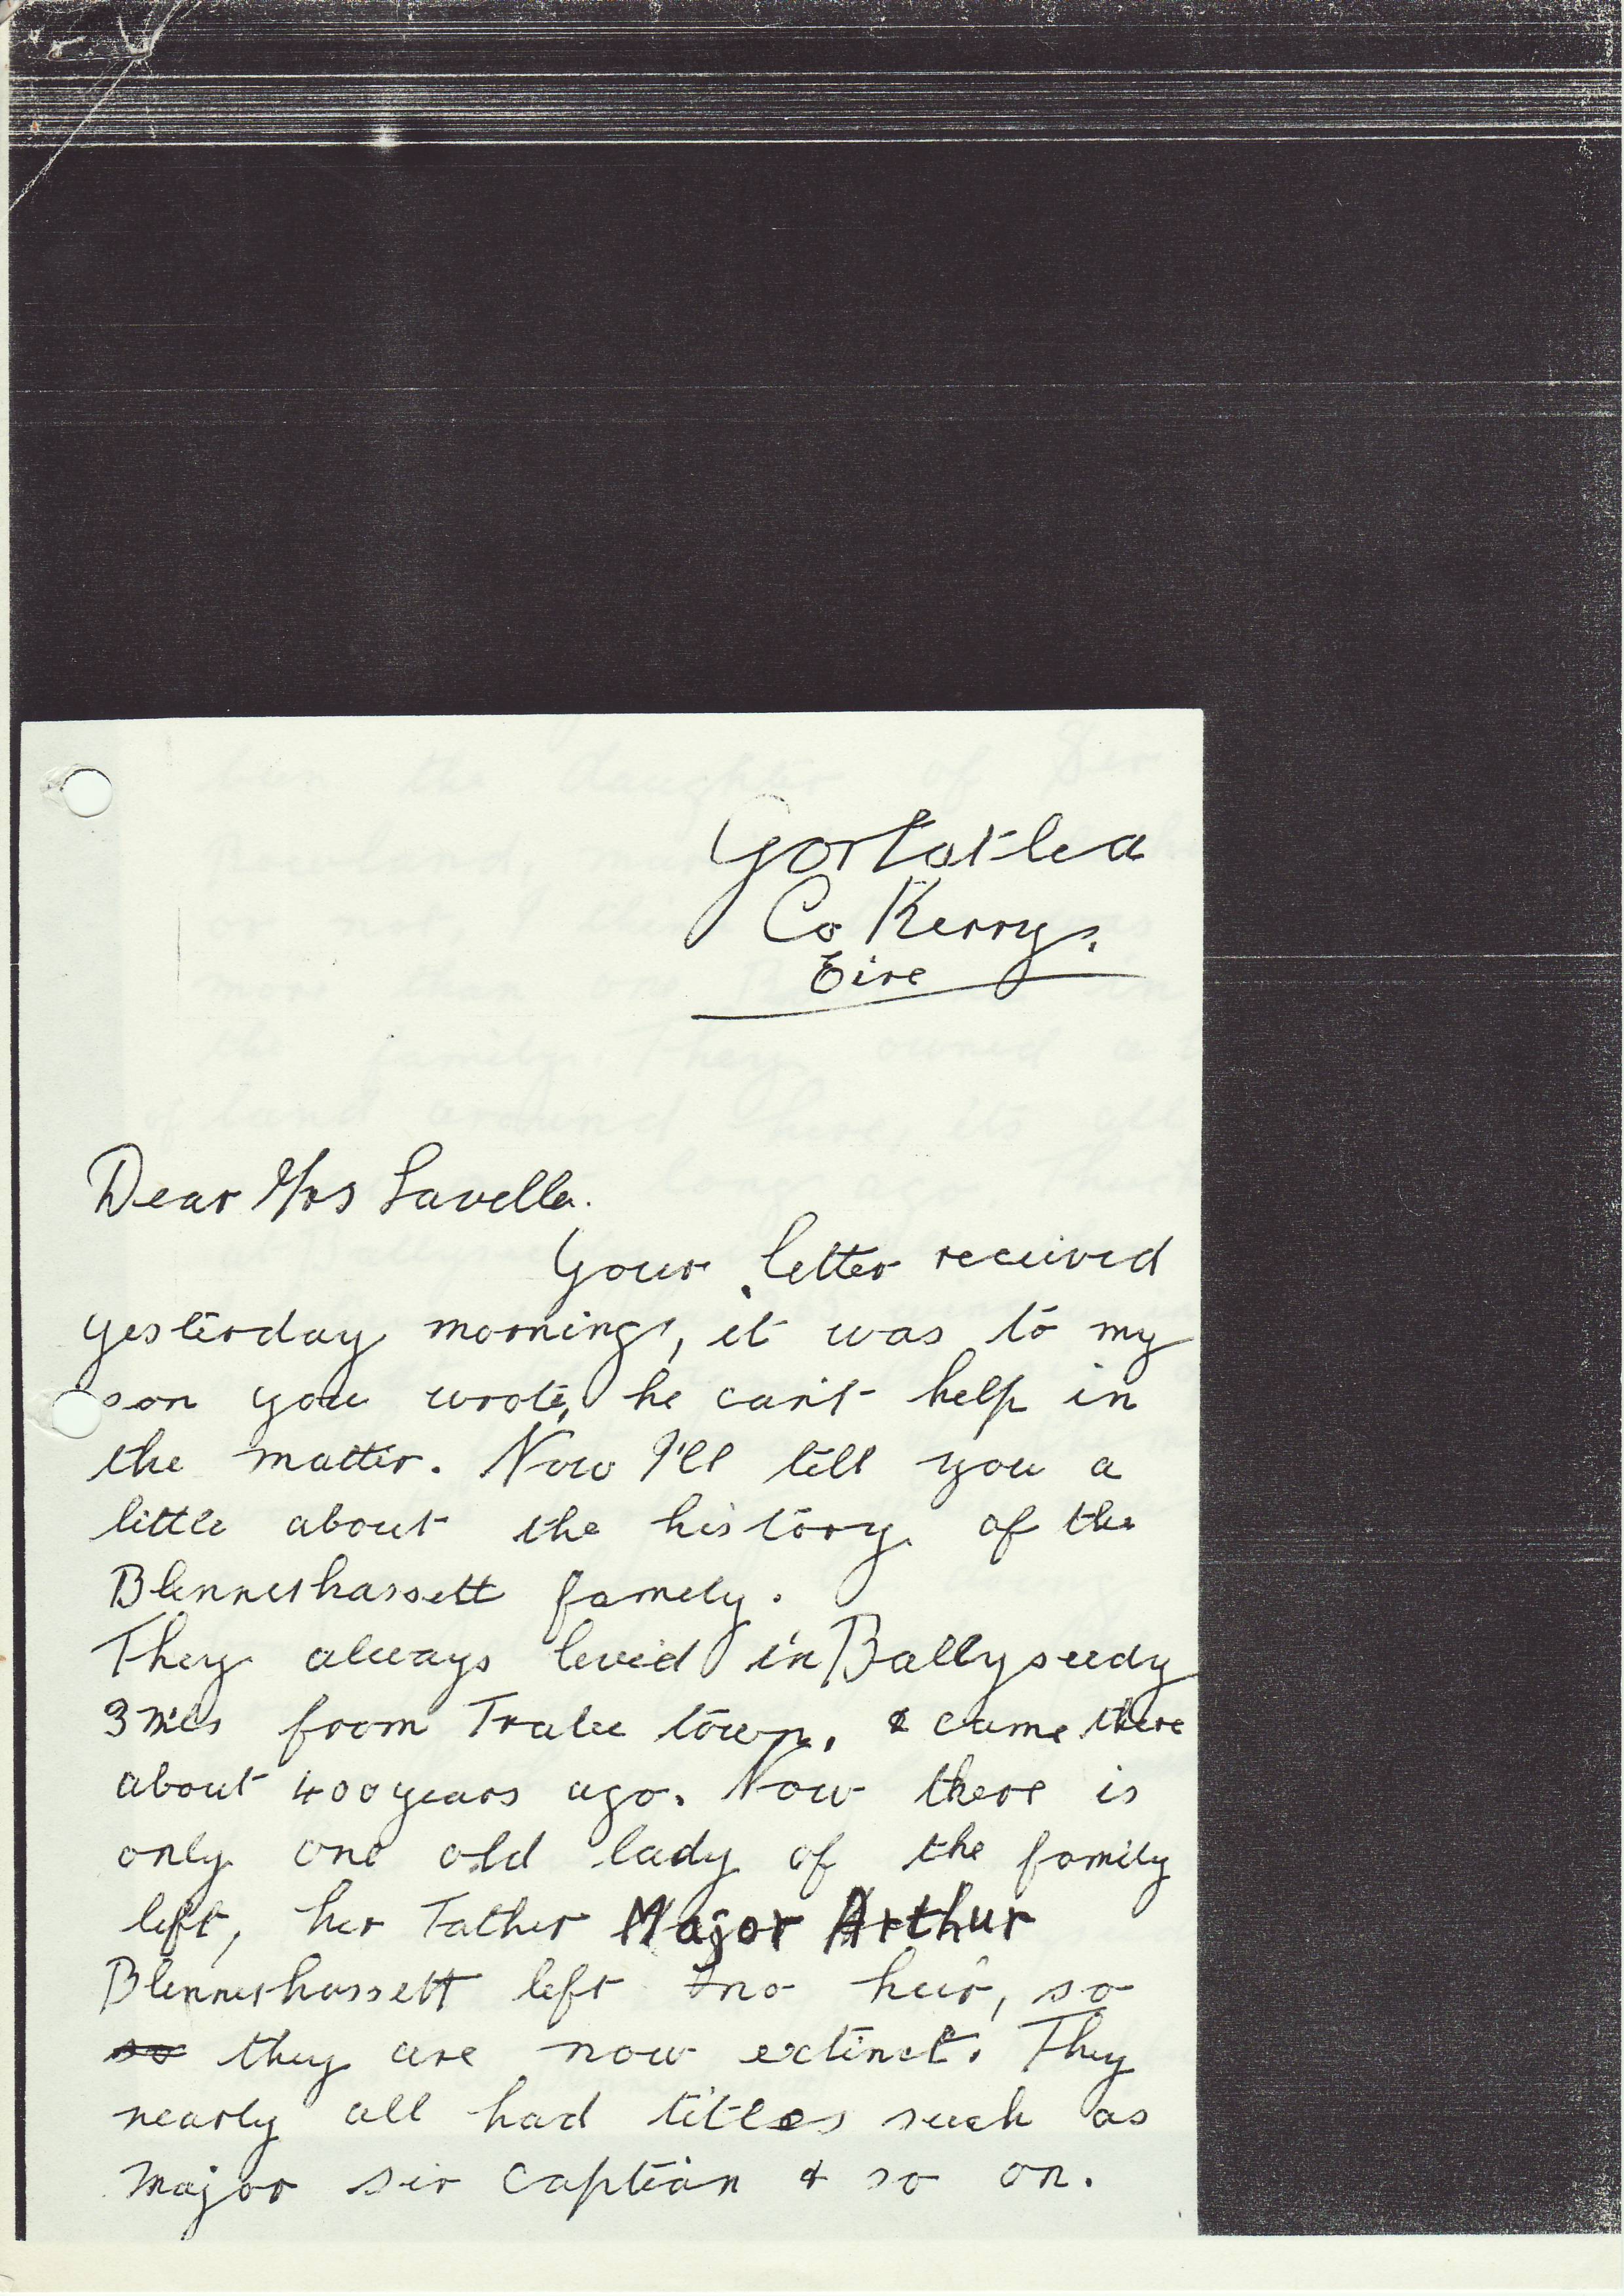 Gortatlea
Co Kerry.
Eire
Dear Mrs Lavelle.
Your letter received
yesterday morning, it was to my
son you wrote, he can't help in
the matter. Now I'll tell you a
little about the history of the
Blennerhassett family.
They always lived in Ballyseedy
3 mls from Tralee town, & came there
about 400 years ago. Now there is
only one old lady of the family
left, her Father Major Arthur
Blennerhassett left no heir, so
so they are now extinct. They
nearly all had titles such as
Major sir Captian & so on.